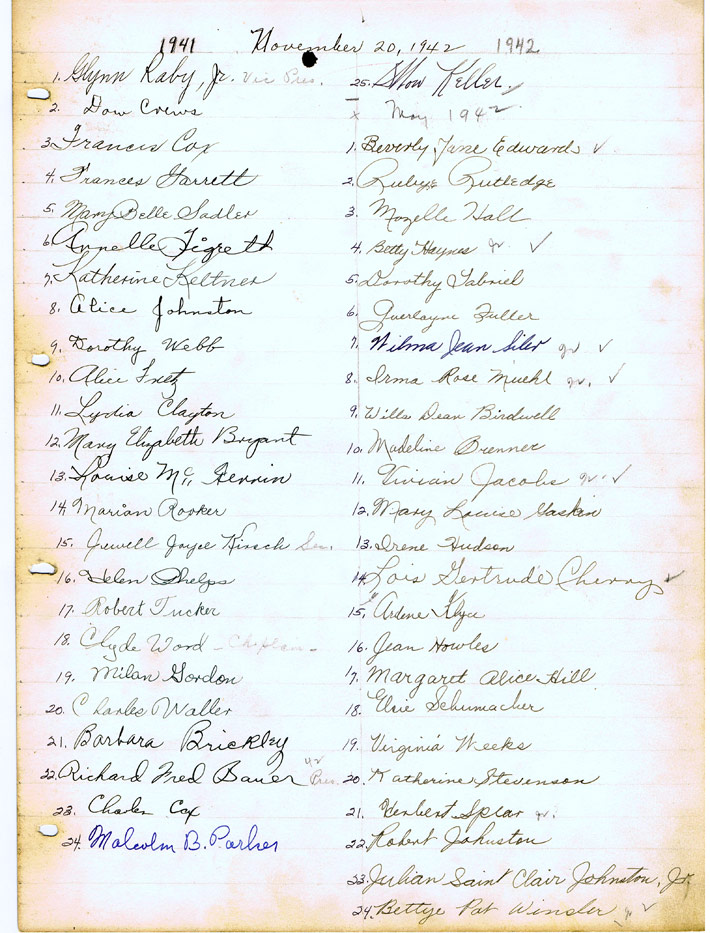 1941 November 20, 1942 1942
1. Glynn Raby, Jr. Vice Pres.
2. Dow Crews
3. Francis Cox
4. Frances Garrett
5. Mary Belle Sadler
6. Annelle Tigrett
7. Katherine Keltner
8. Alice Johnston
9. Dorothy Webb
10. Alice
11. Lydia Clayton
12. Mary Elizabeth Bryant
13. Louise Mc Herrin
14. Marian Rooker
15. Jewell Joyce Kirsch Sec.
16. Helen Phelps
17. Robert Tucker
18. Clyde Word - Chaplain -
19. Milan Gordon
20. Charles Waller
21. Barbara Brickley
22. Richard Fred Bauer Pres.
23. Charles Cox
24. Malcolm B. Parker
25. Keller
x May 1942
1. Beverly Jane Edwards ✓
2. Rutledge
3. Mozelle Hall
4. Betty Haynes jr ✓
5. Dorothy Gabriel
6. Fuller
7. Wilma Jean Siler jr ✓
8. Irma Rose Muehl jr. ✓
9. Willa Dean Birdwell
10. Madeline Brenner
11. Vivian Jacobs jr. ✓
12. Mary Louise Gaskin
13. Irene Hudson
14. Lois Gertrude Cherry ✓
15. Ardene
16. Jean Howles
17. Margaret Alice Hill
18. Elsie Schumacher
19. Virginia Weeks
20. Katherine Stevenson
21. Herbert Spear jr.
22. Robert Johnston
23. Julian Saint Clair Johnston, Jr.
24. Bettye Pat Winsler jr ✓